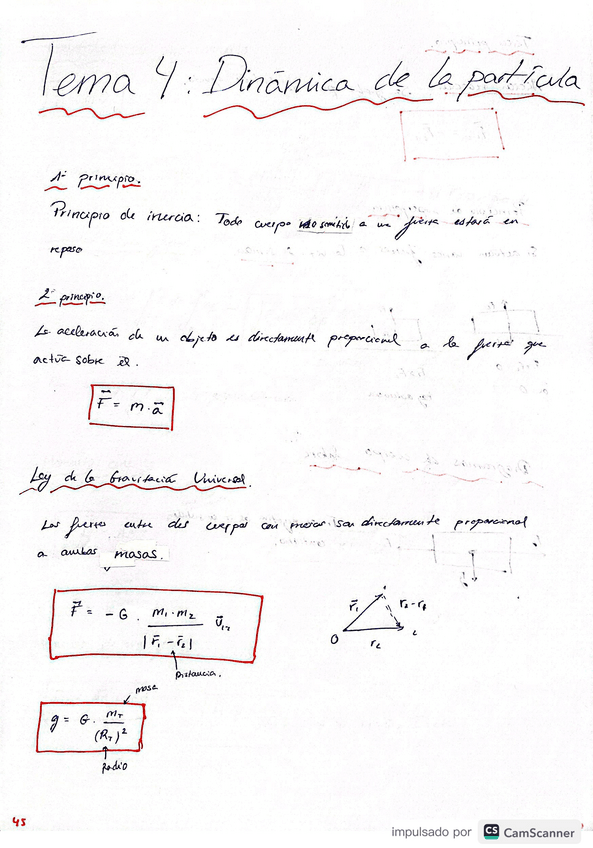 Tema 4: Dinámica de la partícula
1er principio.
Principio de inercia: Todo cuerpo no sometido a una fuerza estará en
reposo
2º principio.
La aceleración de un objeto es directamente proporcional a la fuerza que
actúa sobre él.
F⃗ = m·a⃗
Ley de la Gravitación Universal.
Las fuerzas entre dos cuerpos con masas son directamente proporcional
a ambas masas.
F⃗ = -G · m₁·m₂ / |r̄₁ - r̄₂| ū₁₂
Distancia.
r̄₁
O
r₂
masa
g = G · m_T / (R_T)²
Radio
45
impulsado por CS CamScanner